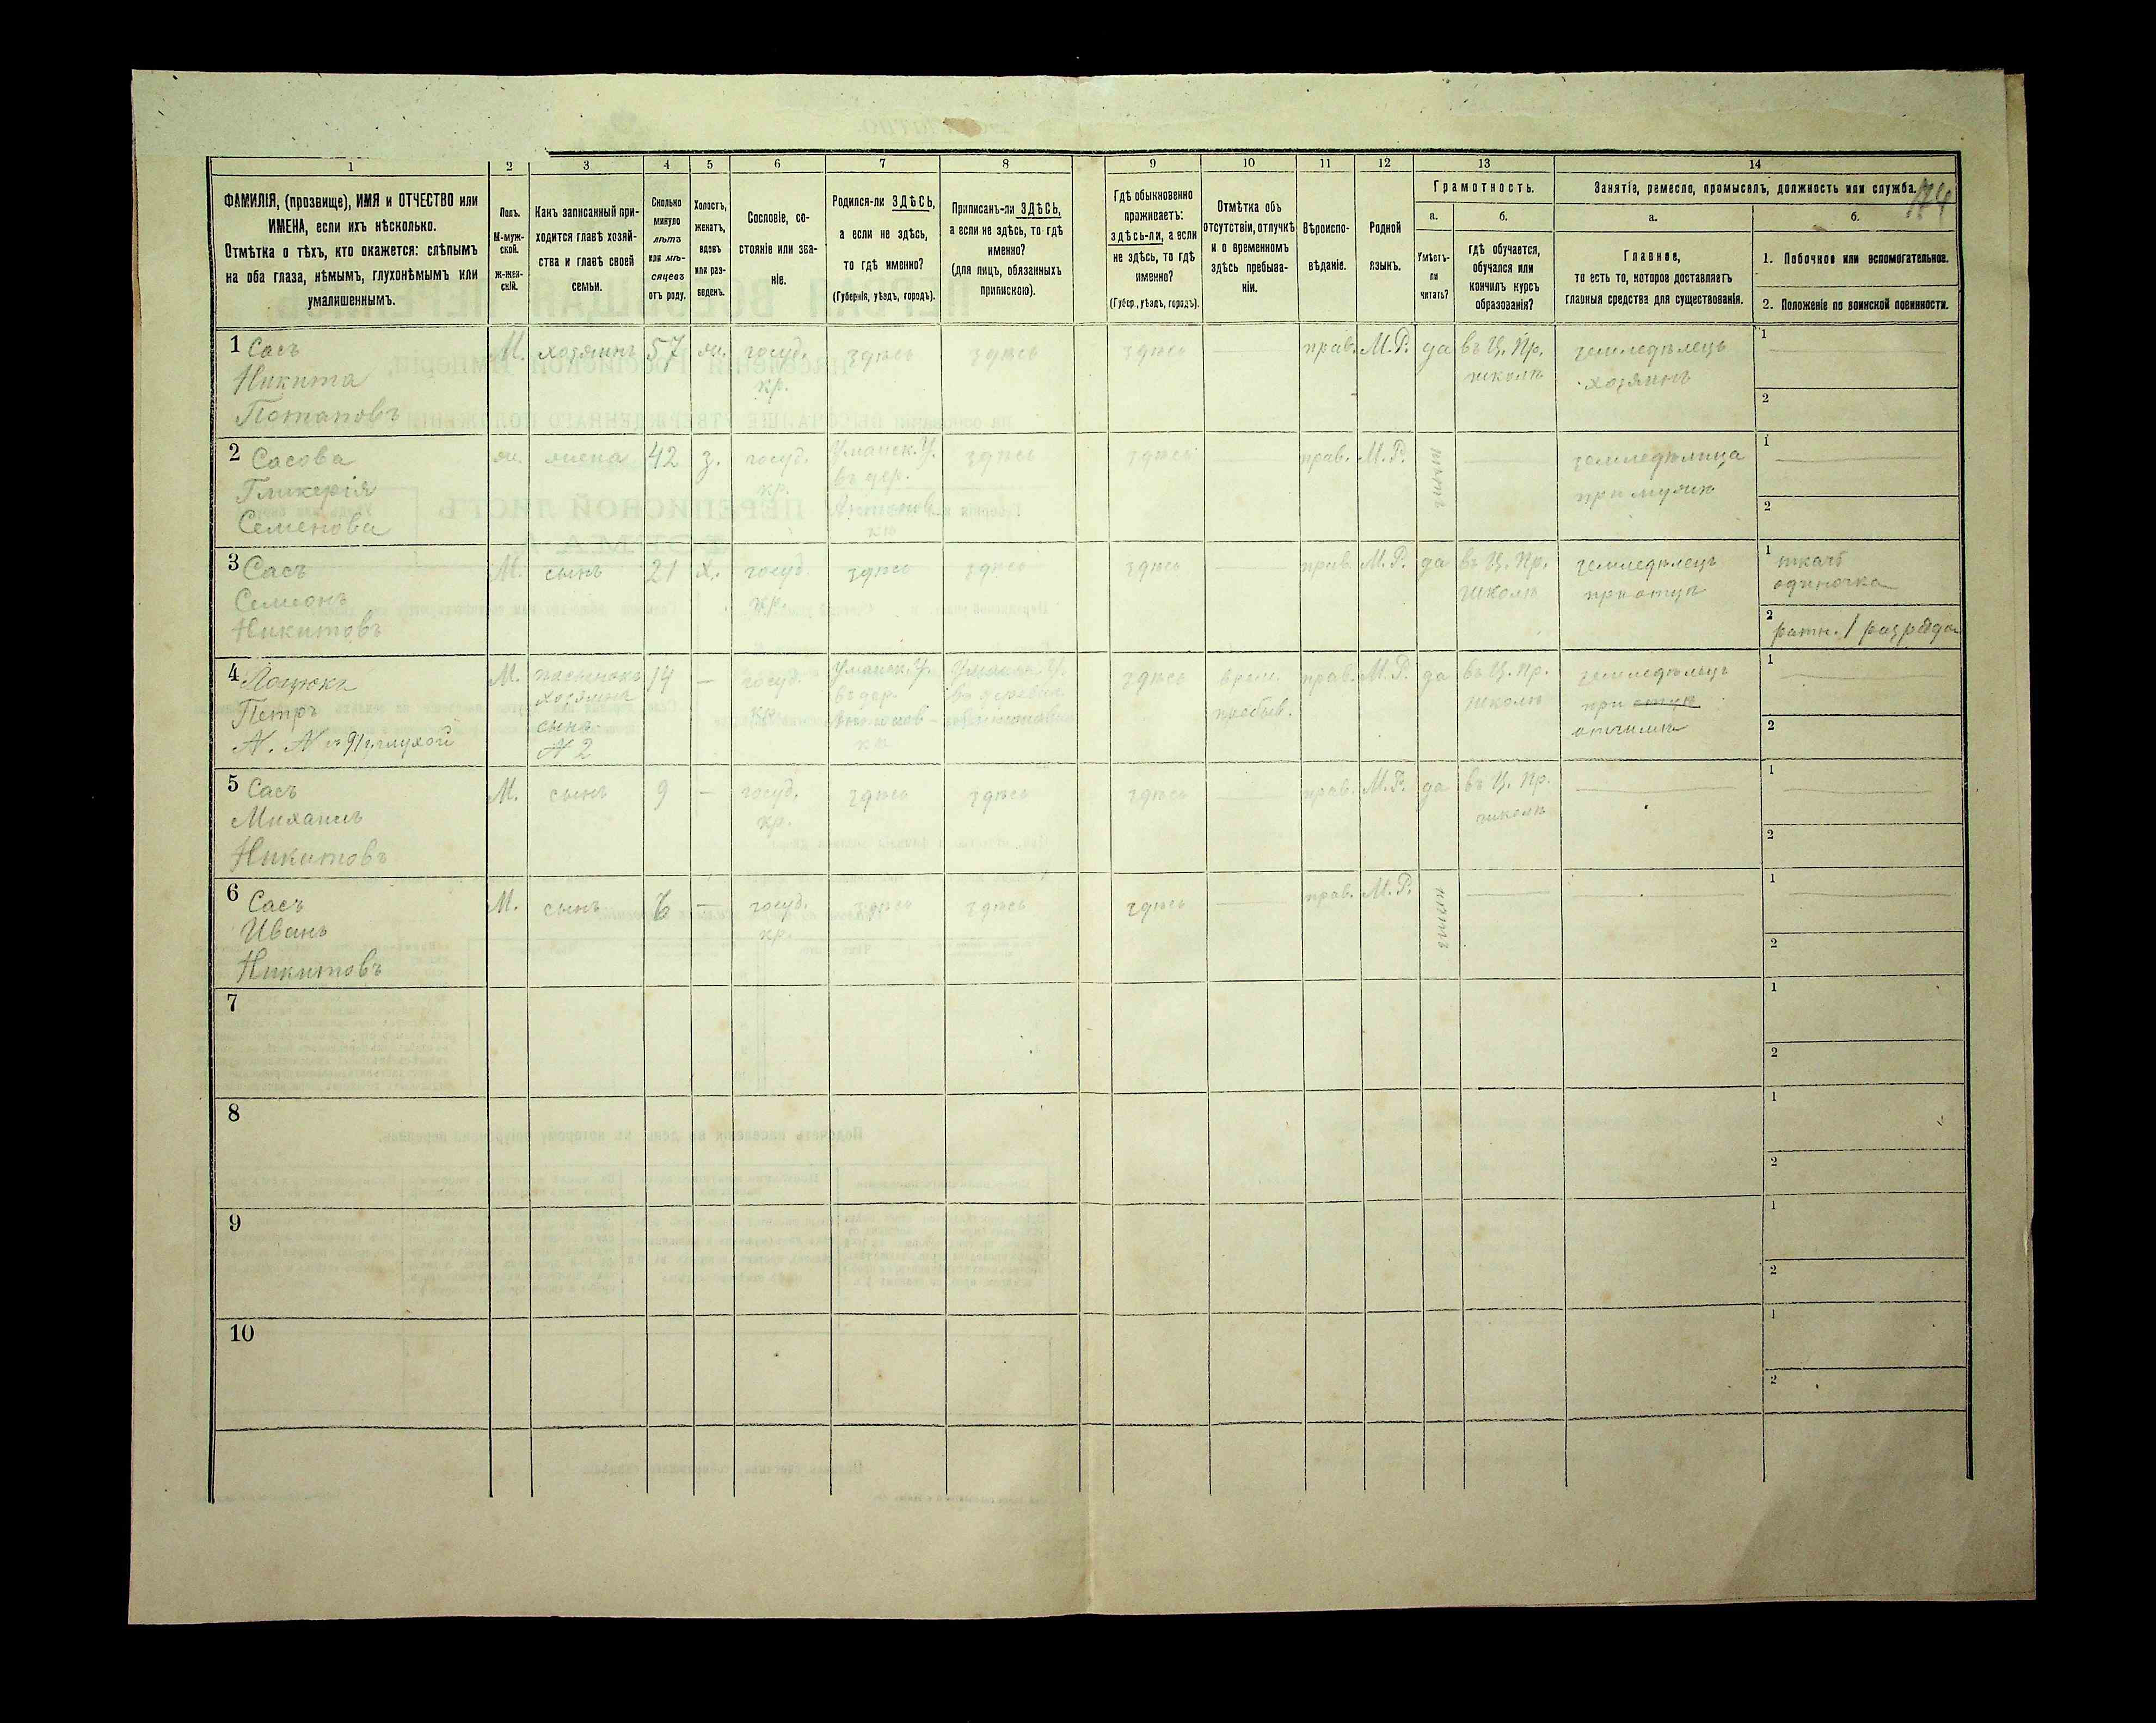 1 2 3 4 5 6 7 8 9 10 11 12 13 14
ФАМИЛІЯ, (прозвище), ИМЯ и ОТЧЕСТВО или
ИМЕНА, если ихъ нѣсколько.
Отмѣтка о тѣхъ, кто окажется: слѣпымъ
на оба глаза, нѣмымъ, глухонѣмымъ или
умалишеннымъ.
Полъ.
М-муж-
ской.
Ж-жен-
скій.
Какъ записанный при-
ходится главѣ хозяй-
ства и главѣ своей
семьи.
Сколько
минуло
лѣтъ
или мѣ-
сяцевъ
отъ роду.
Холостъ,
женатъ,
вдовъ
или раз-
веденъ.
Сословіе, со-
стояніе или зва-
ніе.
Родился-ли ЗДѢСЬ,
а если не здѣсь,
то гдѣ именно?
(Губернія, уѣздъ, городъ).
Приписанъ-ли ЗДѢСЬ,
а если не здѣсь, то гдѣ
именно?
(для лицъ, обязанныхъ
припискою).
Гдѣ обыкновенно
проживаетъ:
здѣсь-ли, а если
не здѣсь, то гдѣ
именно?
(Губер., уѣздъ, городъ).
Отмѣтка объ
отсутствіи, отлучкѣ
и о временномъ
здѣсь пребыва-
ніи.
Вѣроиспо-
вѣданіе.
Родной
языкъ.
Грамотность.
а.
Умѣетъ-
ли
читать?
б.
гдѣ обучается,
обучался или
кончилъ курсъ
образованія?
Занятіе, ремесло, промыселъ, должность или служба.
174
а.
Главное,
то есть то, которое доставляетъ
главныя средства для существованія.
б.
1. Побочное или вспомогательное.
2. Положеніе по воинской повинности.
1 Сасъ М. хозяинъ 57 ж. госуд. здѣсь здѣсь здѣсь — прав. М.Р. да въ Ц. Пр. земледѣлецъ 1 —
Никита кр. школѣ хозяинъ
Потаповъ 2
2 Сасова ж. жена 42 з. госуд. Уманск. У. здѣсь здѣсь — прав. М.Р. нѣтъ — земледѣлица 1 —
Гликерія кр. въ дер. при мужѣ
Семенова 2
3 Сасъ М. сынъ 21 х. госуд. здѣсь здѣсь здѣсь — прав. М.Р. да въ Ц. Пр. земледѣлецъ 1 ткачъ
Семеонъ кр. школѣ при отцѣ одиночка
Никитовъ 2 ратн. 1 разряда
4 М. пасынокъ 14 — госуд. Уманск. У. Уманск. У. здѣсь врем. прав. М.Р. да въ Ц. Пр. земледѣлецъ 1 —
Петръ хозяина кр. въ дер. въ деревнѣ пребыв. школѣ при отцѣ
глухой сынъ отчимѣ 2
N 2
5 Сасъ М. сынъ 9 — госуд. здѣсь здѣсь здѣсь — прав. М.Р. да въ Ц. Пр. — 1 —
Михаилъ кр. школѣ
Никитовъ 2
6 Сасъ М. сынъ 6 — госуд. здѣсь здѣсь здѣсь — прав. М.Р. нѣтъ — — 1 —
Иванъ кр.
Никитовъ 2
7 1
2
8 1
2
9 1
2
10 1
2